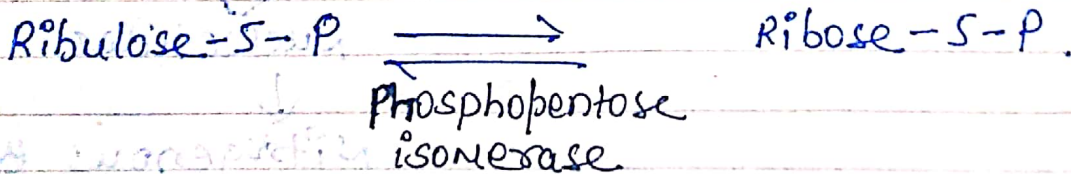 Ribulose-5-P ⇌ Ribose-5-P.
Phosphopentose
isomerase